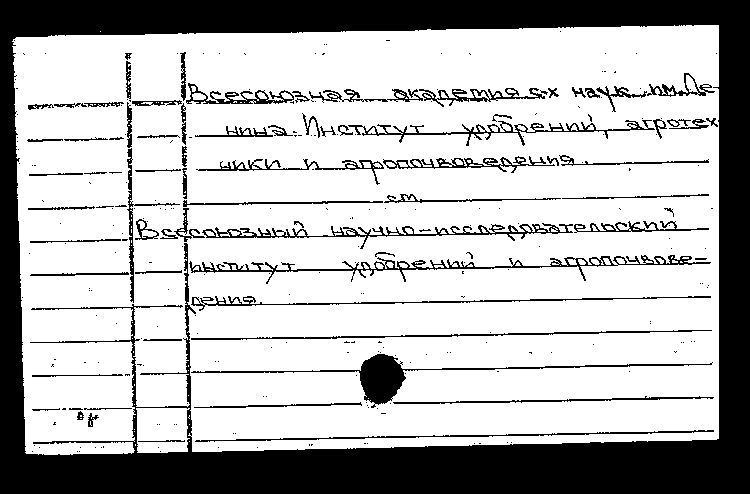 Всесоюзная академия с-х наук им. Ле-
нина. Институт удобрений, агротех-
ники и агропочвоведения.
см.
Всесоюзный научно-исследовательский
институт удобрений и агропочвове=
дения.